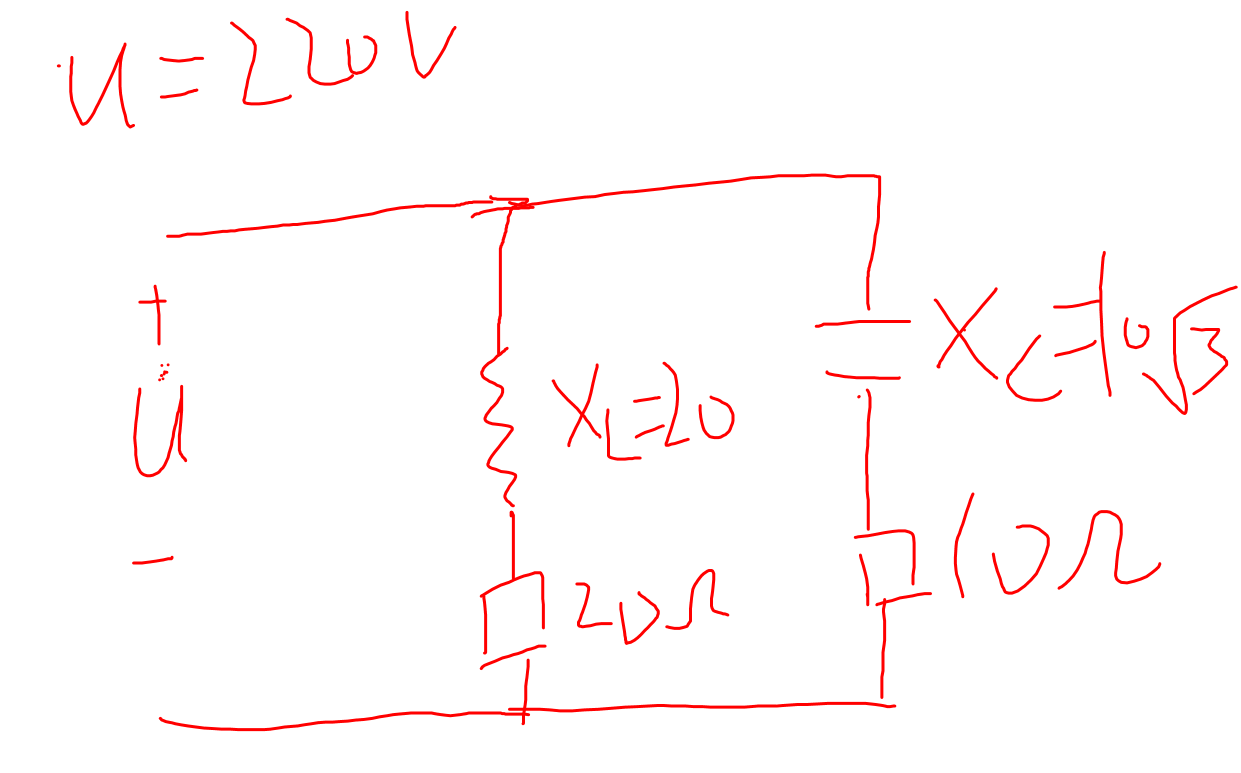 U=220V
+
U̇
-
X_L=20
20Ω
X_C=10√3
10Ω